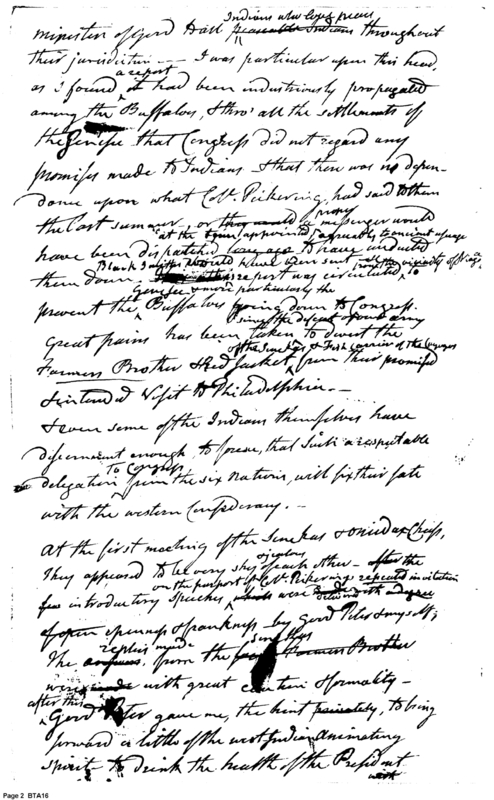 Indians who love peace
ministers of good Hall peaceable Indians throughout
their jurisdiction — I was particular upon this head,
a report
as I found, it had been industriously propagated
among the Buffaloes, & thro' all the settlements of
the Genesee that Congress did not regard any
promises made to Indians & that there was no depen-
dance upon what Col. Pickering, had said to them
the last summer, or they would messenger would
at the time appointed agreeably to ancient usage
have been dispatched long ago to have conducted
Black Smiths would have been sent
them down report was circulated, to
Genesee & more particularly the
prevent the Buffaloes going down to Congress.
since the defeat of our army
Great pains has been taken to divert the
of the Senekas &
Farmers Brother & Red Jacket, from their promised
& intended Visit to Philadelphia. —
& even some of the Indians themselves have
discernment enough, to foresee, that such a respectable
to Congress
delegation from the six Nations, will fix their fate
with the western Confederacy. —
At the first meeting of the Senekas & Oneida Chiefs,
They appeared to be very shy & jealous of each other — after the
on the purport of Col. Pickerings repeated invitation
few introductory speeches, which were delivered with a degree
of open openness & frankness by Good Peter & myself;
replies made
The answers, from the Farmers Brother
were made with great caution & formality —
after this
Good Peter gave me, the hint privately, to bring
forward a little of the west Indian animating
spirit — to drink the health of the President
with
Page 2 BTA16